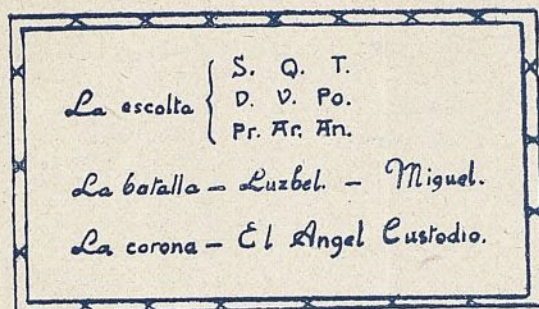 S. Q. T.
La escolta { D. V. Po.
Pr. Ar. An.
La batalla – Luzbel. – Miguel.
La corona – El Angel Custodio.